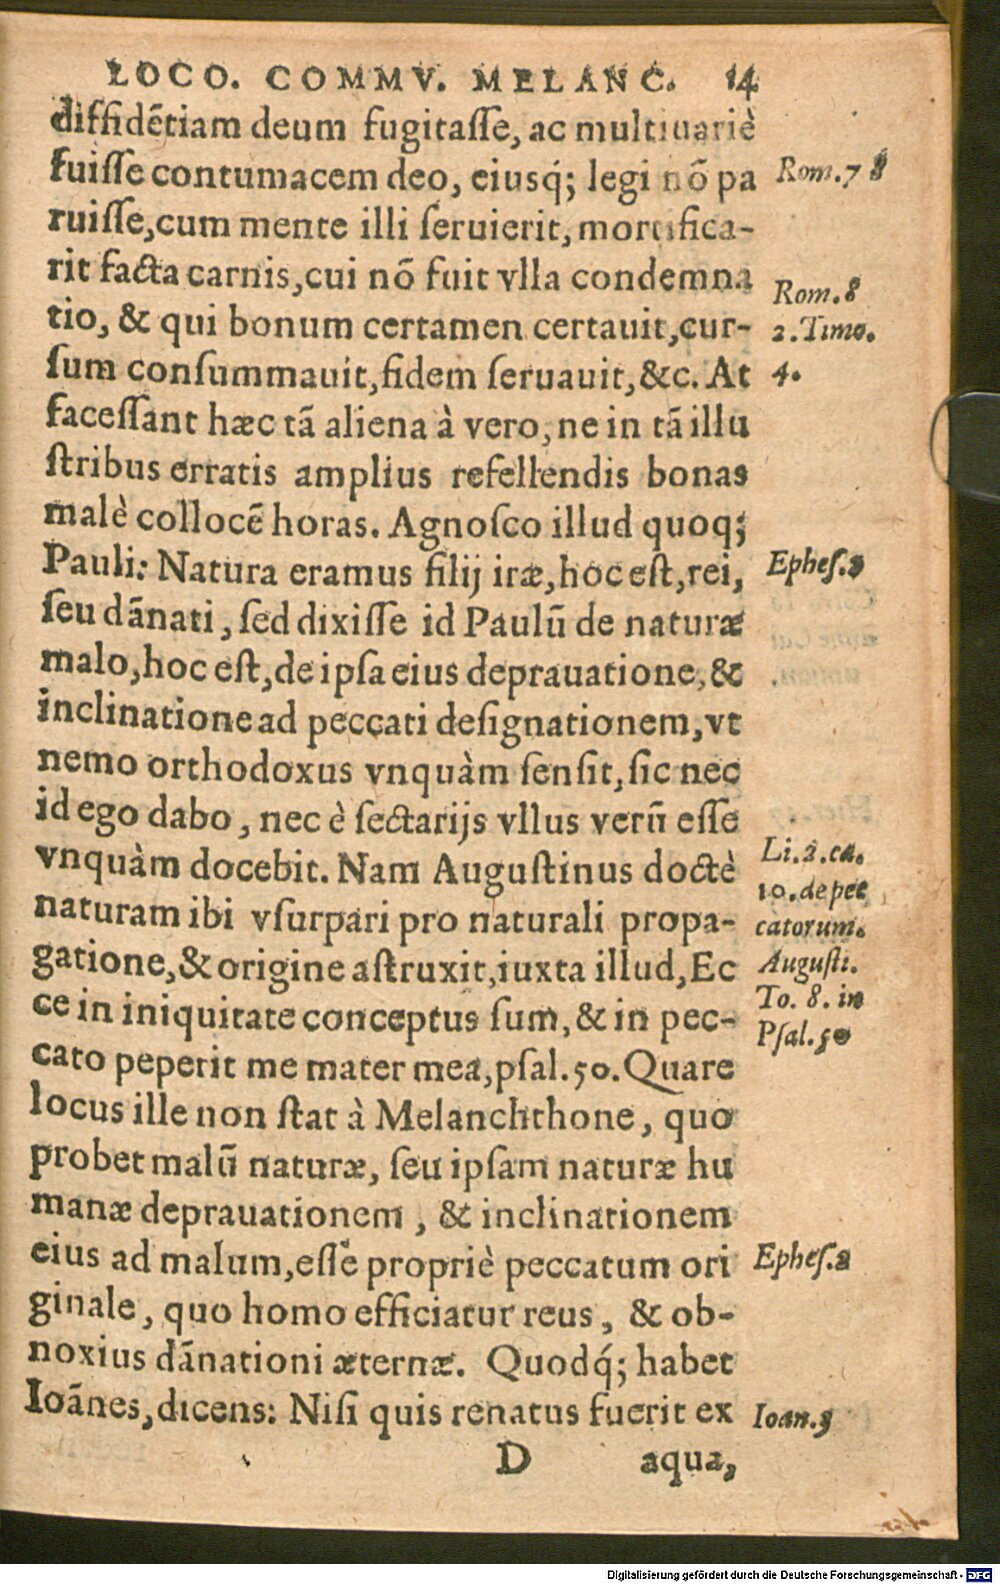 LOCO. COMMV. MELANC. 14
diffidētiam deum fugitaſſe, ac multiuariè
fuiſſe contumacem deo, eiusq́; legi nō pa
ruiſſe, cum mente illi ſeruierit, mortifica-
rit facta carnis, cui nō fuit vlla condemna
tio, & qui bonum certamen certauit, cur-
ſum conſummauit, fidem ſeruauit, &c. At
faceſſant hæc tā aliena à vero, ne in tā illu
ſtribus erratis amplius refellendis bonas
malè collocē horas. Agnoſco illud quoq;
Pauli: Natura eramus filij iræ, hoc eſt, rei,
ſeu dānati, ſed dixiſſe id Paulū de naturæ
malo, hoc eſt, de ipſa eius deprauatione, &
inclinatione ad peccati deſignationem, vt
nemo orthodoxus vnquàm ſenſit, ſic nec
id ego dabo, nec è ſectarijs vllus verū eſſe
vnquàm docebit. Nam Auguſtinus doctè
naturam ibi vſurpari pro naturali propa-
gatione, & origine aſtruxit, iuxta illud, Ec
ce in iniquitate conceptus ſum, & in pec-
cato peperit me mater mea, pſal. 50. Quare
locus ille non ſtat à Melanchthone, quo
probet malū naturæ, ſeu ipſam naturæ hu
manæ deprauationem, & inclinationem
eius ad malum, eſſe propriè peccatum ori
ginale, quo homo efficiatur reus, & ob-
noxius dānationi æternæ. Quodq́; habet
Ioānes, dicens: Niſi quis renatus fuerit ex
D aqua,
Rom. 7 8
Rom. 8
2. Timo.
4.
Epheſ. 2
Li. 2. ca.
10. de pec
catorum.
Auguſti.
To. 8. in
Pſal. 50
Epheſ. 2
Ioan. 3
Digitalisierung gefördert durch die Deutsche Forschungsgemeinschaft - DFG